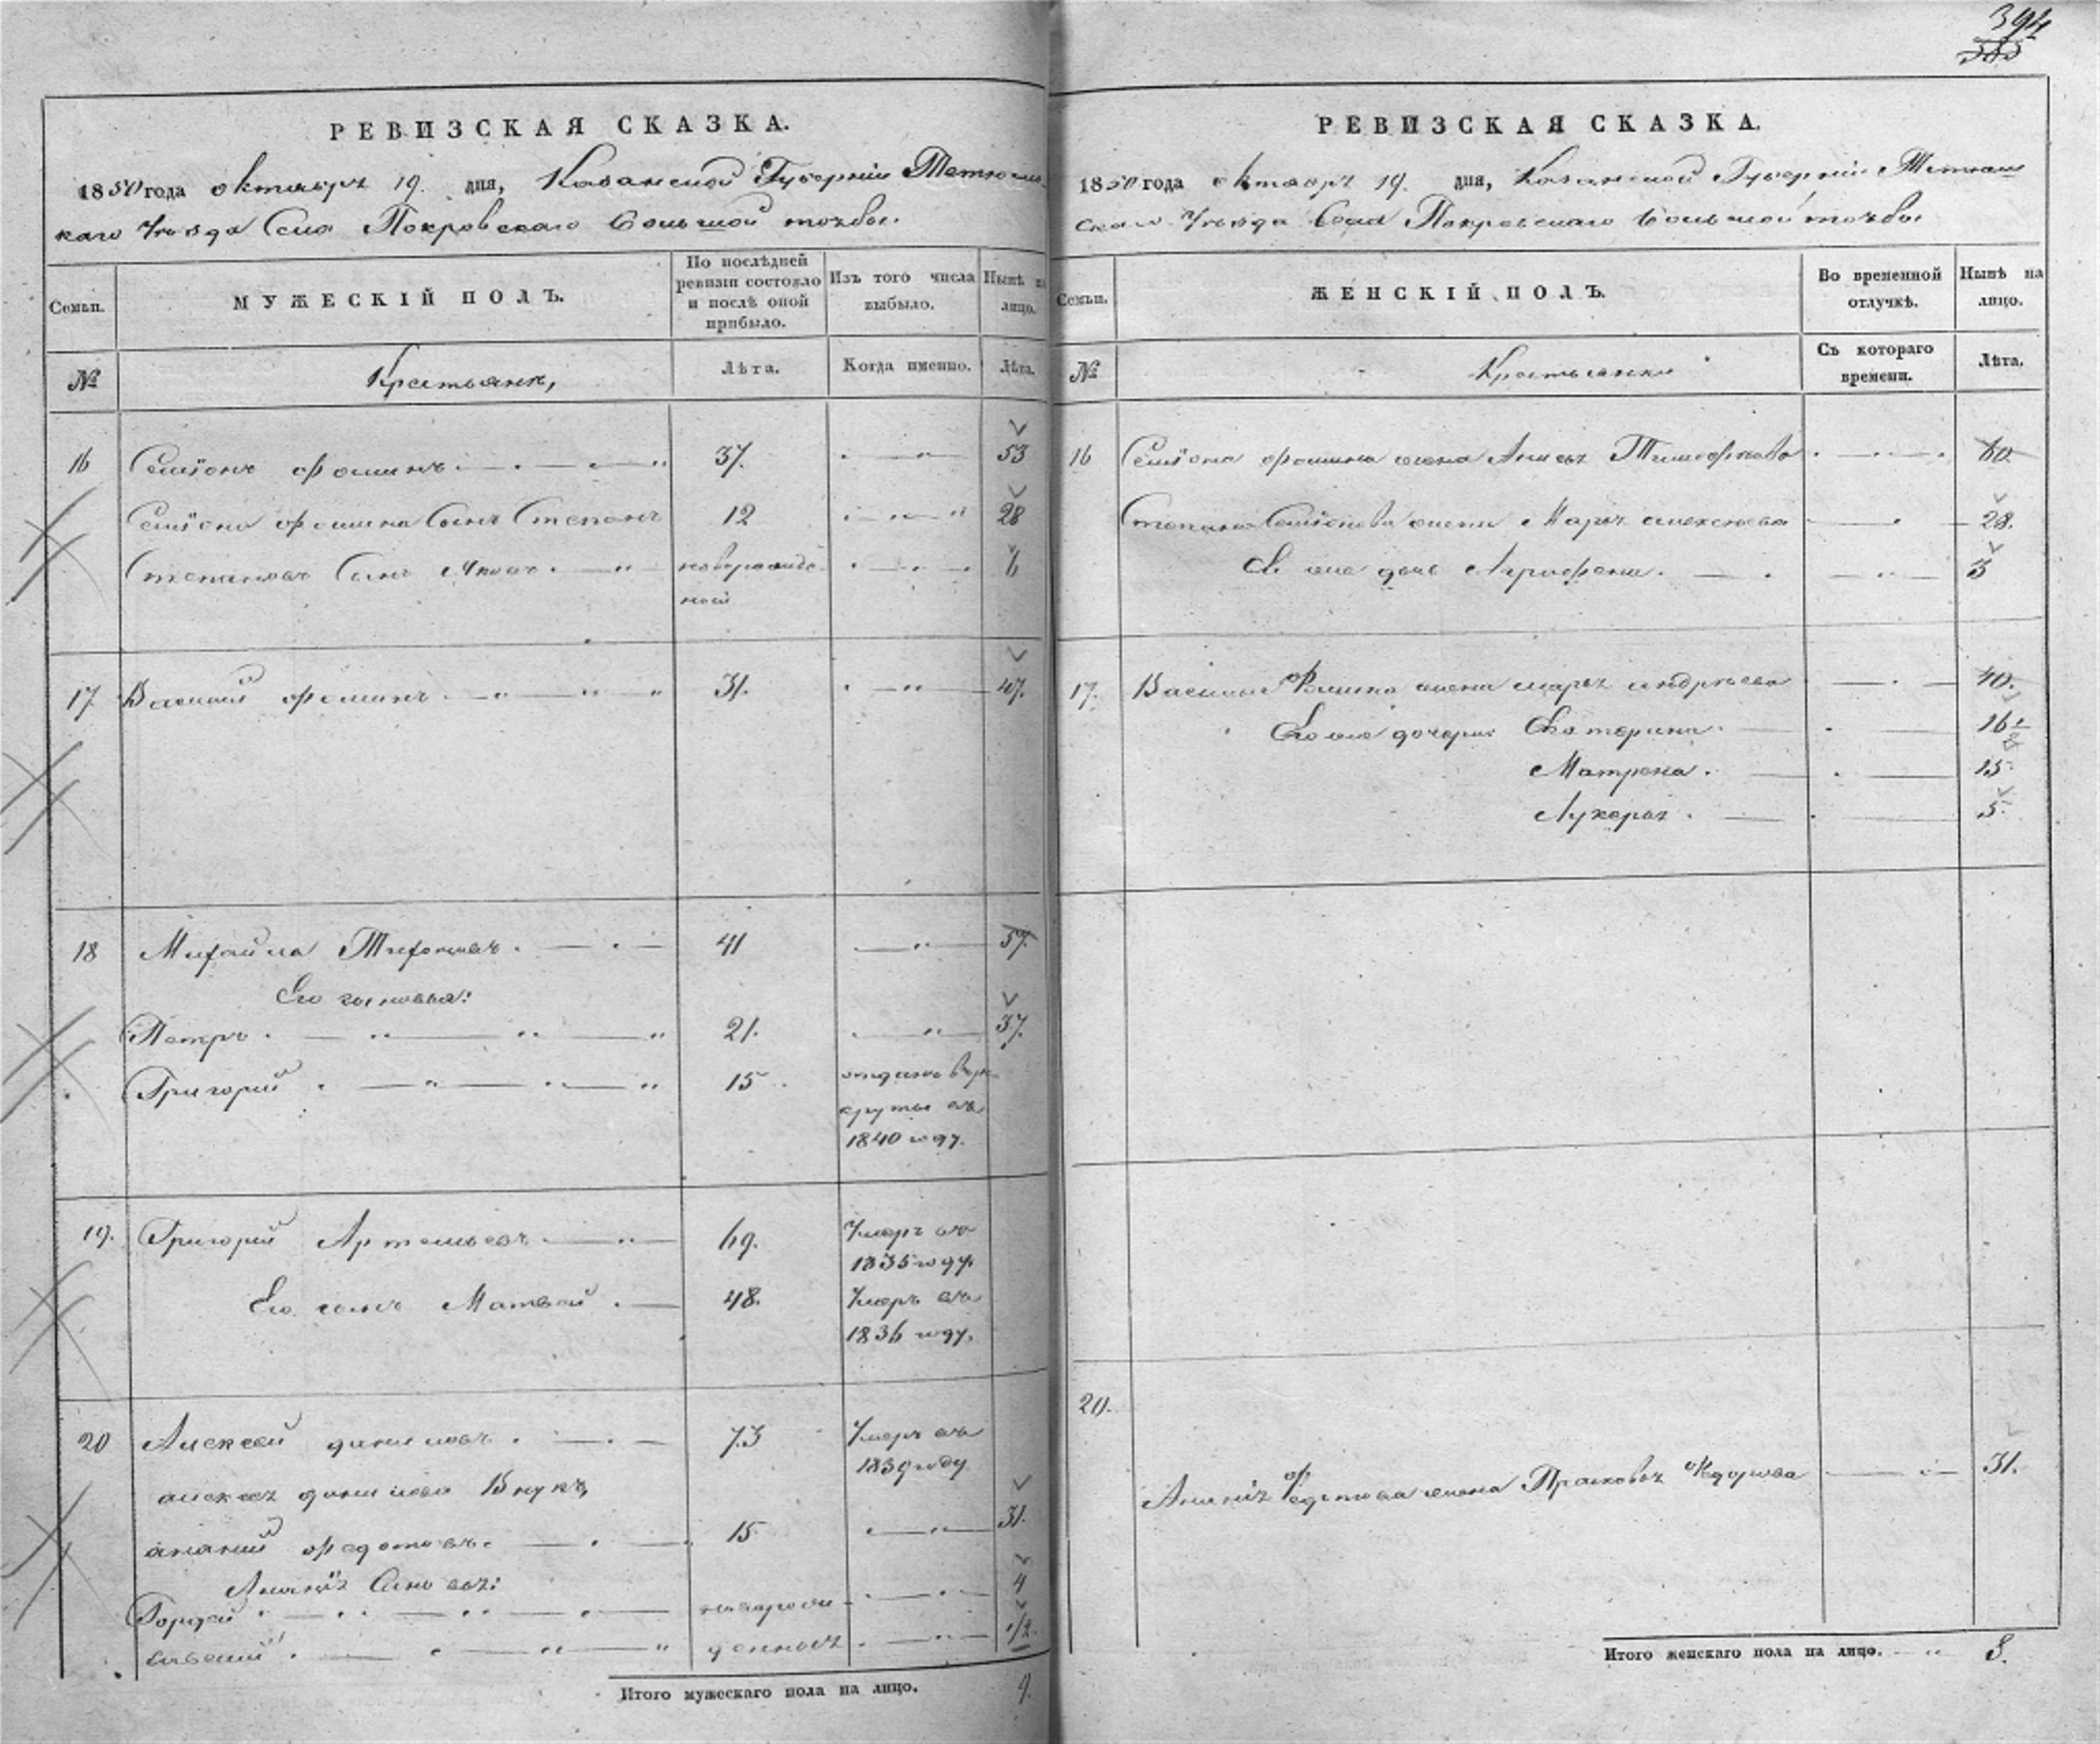 394
385
РЕВИЗСКАЯ СКАЗКА.
1850 года октября 19. дня, Казанской Губернiи Тетюшс-
каго Уѣзда Села Покровскаго
Семьи.
МУЖЕСКIЙ ПОЛЪ.
По послѣдней ревизiи состояло и послѣ оной прибыло.
Изъ того числа выбыло.
Нынѣ на лицо.
№
Крестьянѣ,
Лѣта.
Когда именно.
Лѣта.
16 Семiонъ Фоминъ 37. 53
Семiона Фомина Сынъ Степанъ 12 28
Степановъ Сынъ новорожде- 6
ной
17 Василий Фоминъ 31. 47.
18 Михайла Тифоновъ 41 57.
Его сыновья:
Петръ 21. 37.
Григорий 15 отданъ въ ре-
круты въ
1840 году.
19. Григорий Артемьевъ 69. Умеръ въ
1835 году
Его сынъ Матвей 48. Умеръ въ
1836 году.
20 Алексей Данилов 73 Умеръ въ
1839 году
Алексея Данилова Внукъ,
Ананий Федотовъ 15 31.
Ананiя Сыновья:
Гордей новорож- 4
Савелий денныя 1/2
Итого мужескаго пола на лицо. 9.
РЕВИЗСКАЯ СКАЗКА.
1850 года октября 19. дня, Казанской Губернiи Тетюш-
скаго Уѣзда Села Покровскаго
Семьи.
ЖЕНСКIЙ ПОЛЪ.
Во временной отлучкѣ.
Нынѣ на лицо.
№
Крестьянки
Съ котораго времени.
Лѣта.
16 Семiона Фомина жена Анисья Тимофѣева 60.
Степана Семiонова жена Марья Алексѣева 28.
Ея же дочь Аграфена. 3
17. Василья Фомина жена Марья Андрѣева 40.
Его же дочери: Екатерина 16 1/2
Матрена. 13.
Лукерья 5.
20.
Ананiя Федотова жена Прасковья Федорова 31.
Итого женскаго пола на лицо. 8.